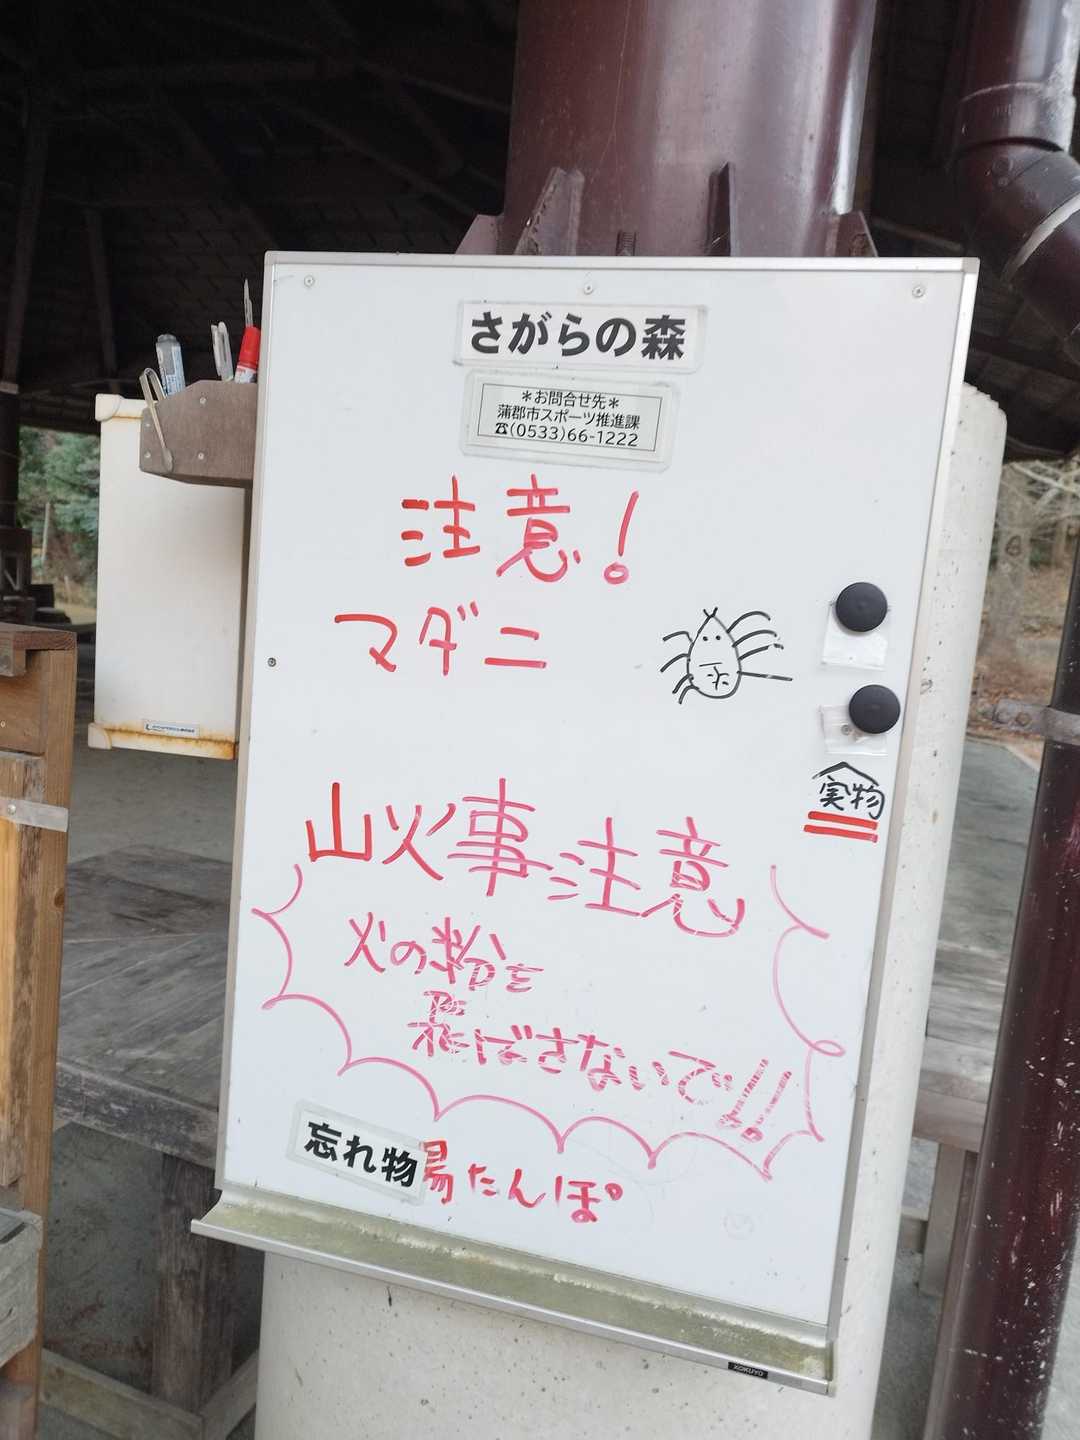 さがらの森
＊お問合せ先＊
蒲郡市スポーツ推進課
☎(0533)66-1222
注意！
マダニ
実物
山火事注意
火の粉を
飛ばさないで!!
忘れ物 湯たんぽ
KOKUYO